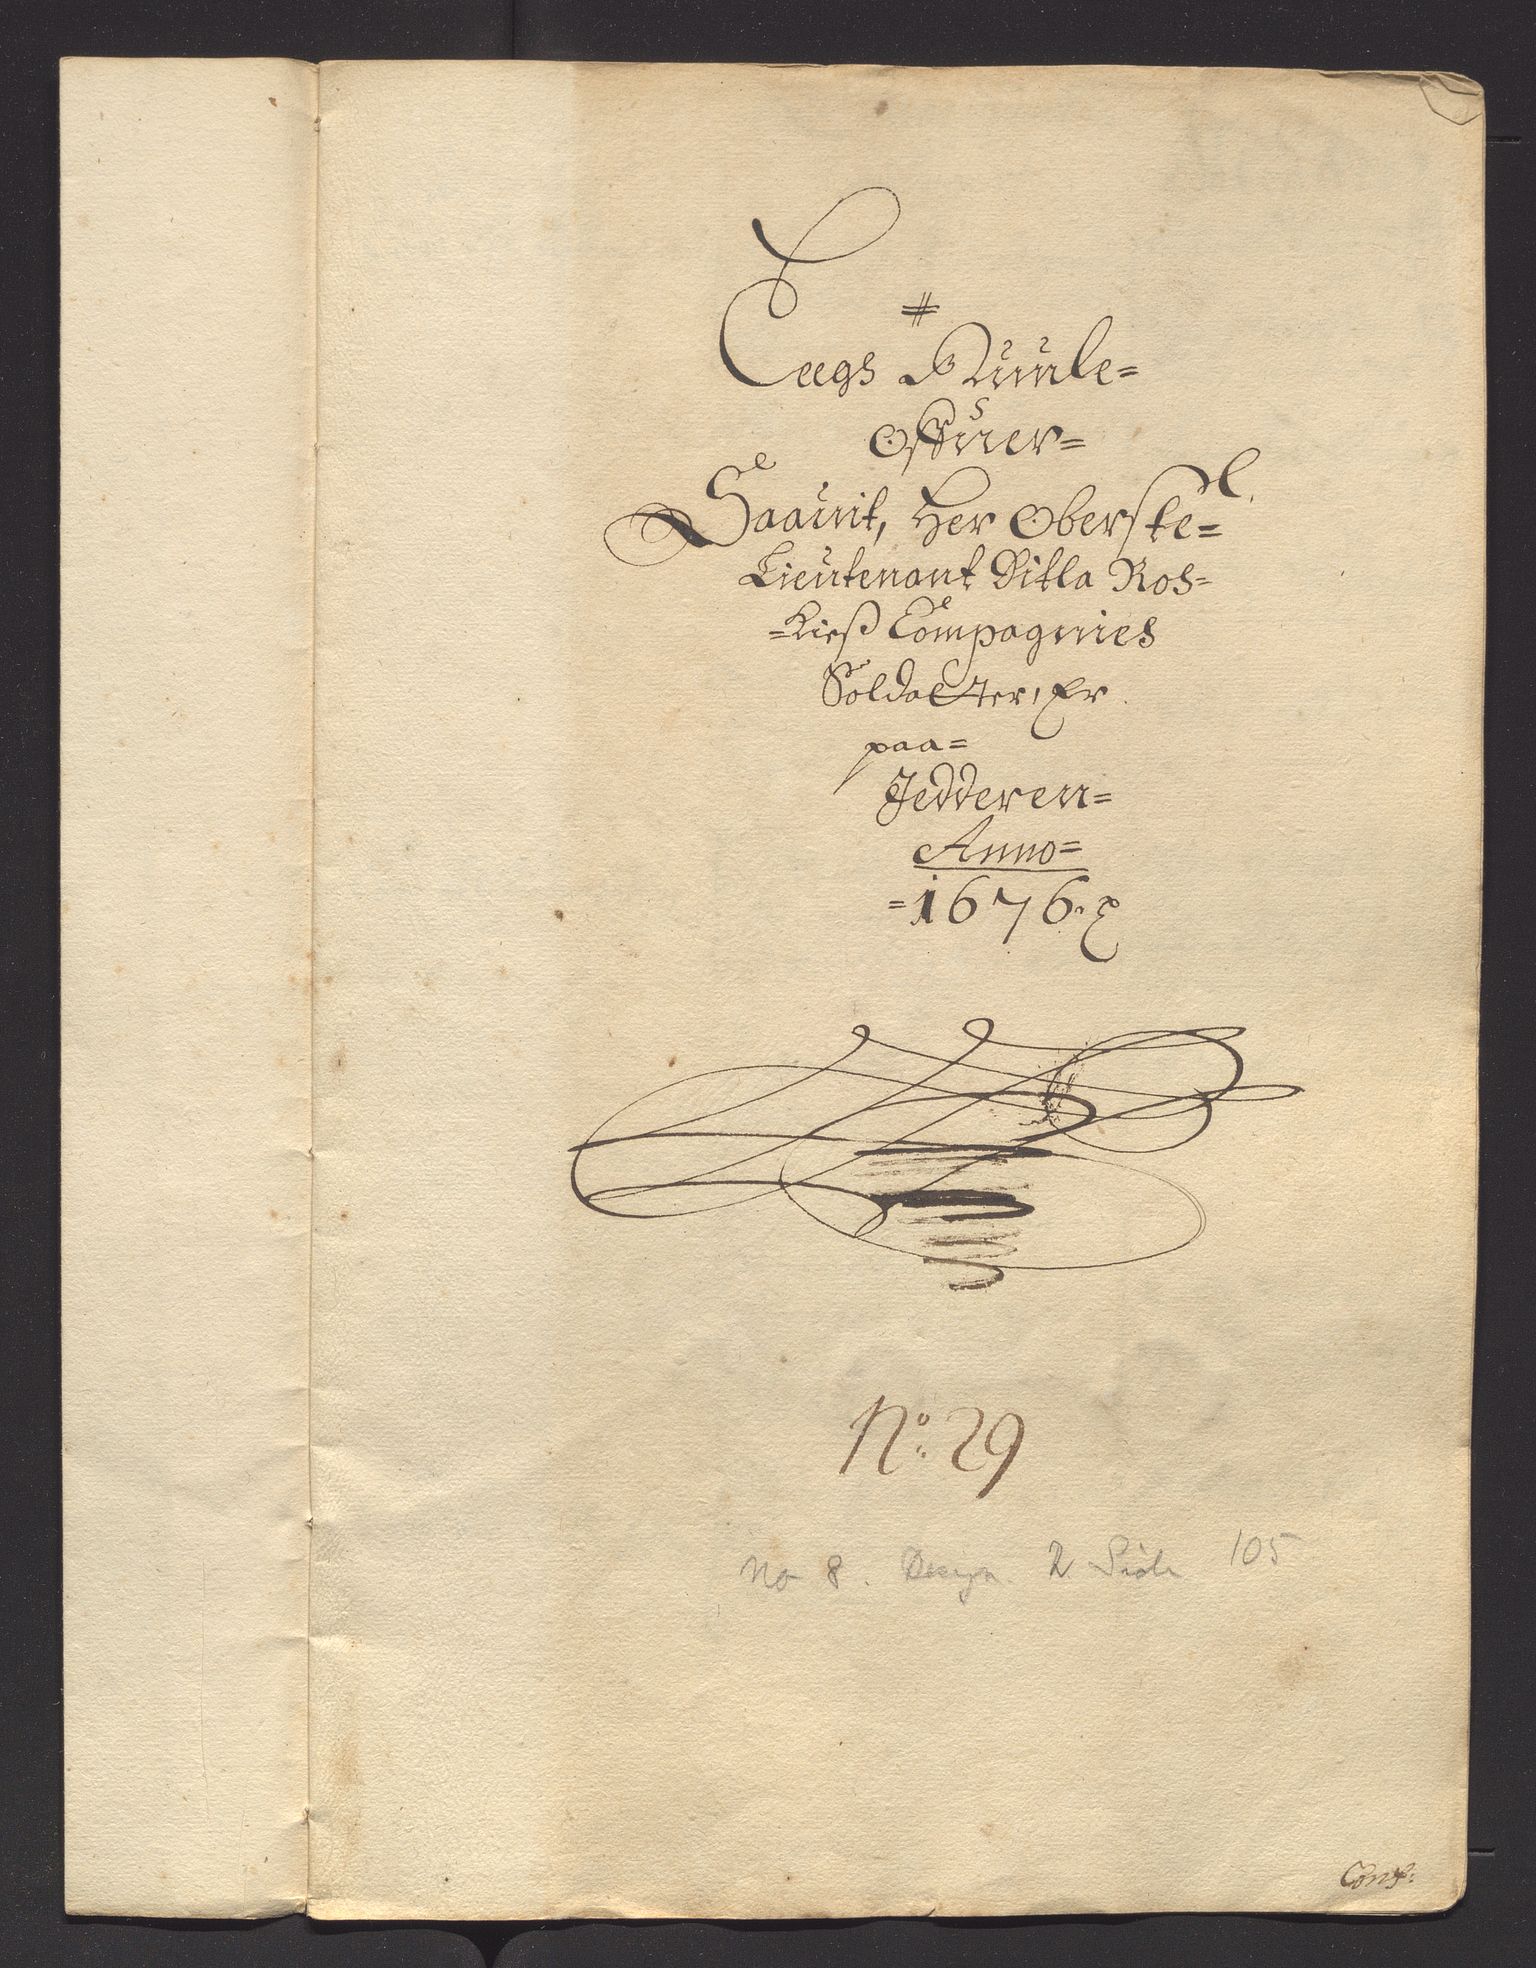 Leegs Ruule
Offuer
Saauit, Her Oberste=
Lieutenant Ditla Ros=
=Kieß Compagnies
Soldatter, Er
paa=
Jedderen=
Anno=
=1676.
No: 29
No 8. Design. 2 Side 105
Conf: